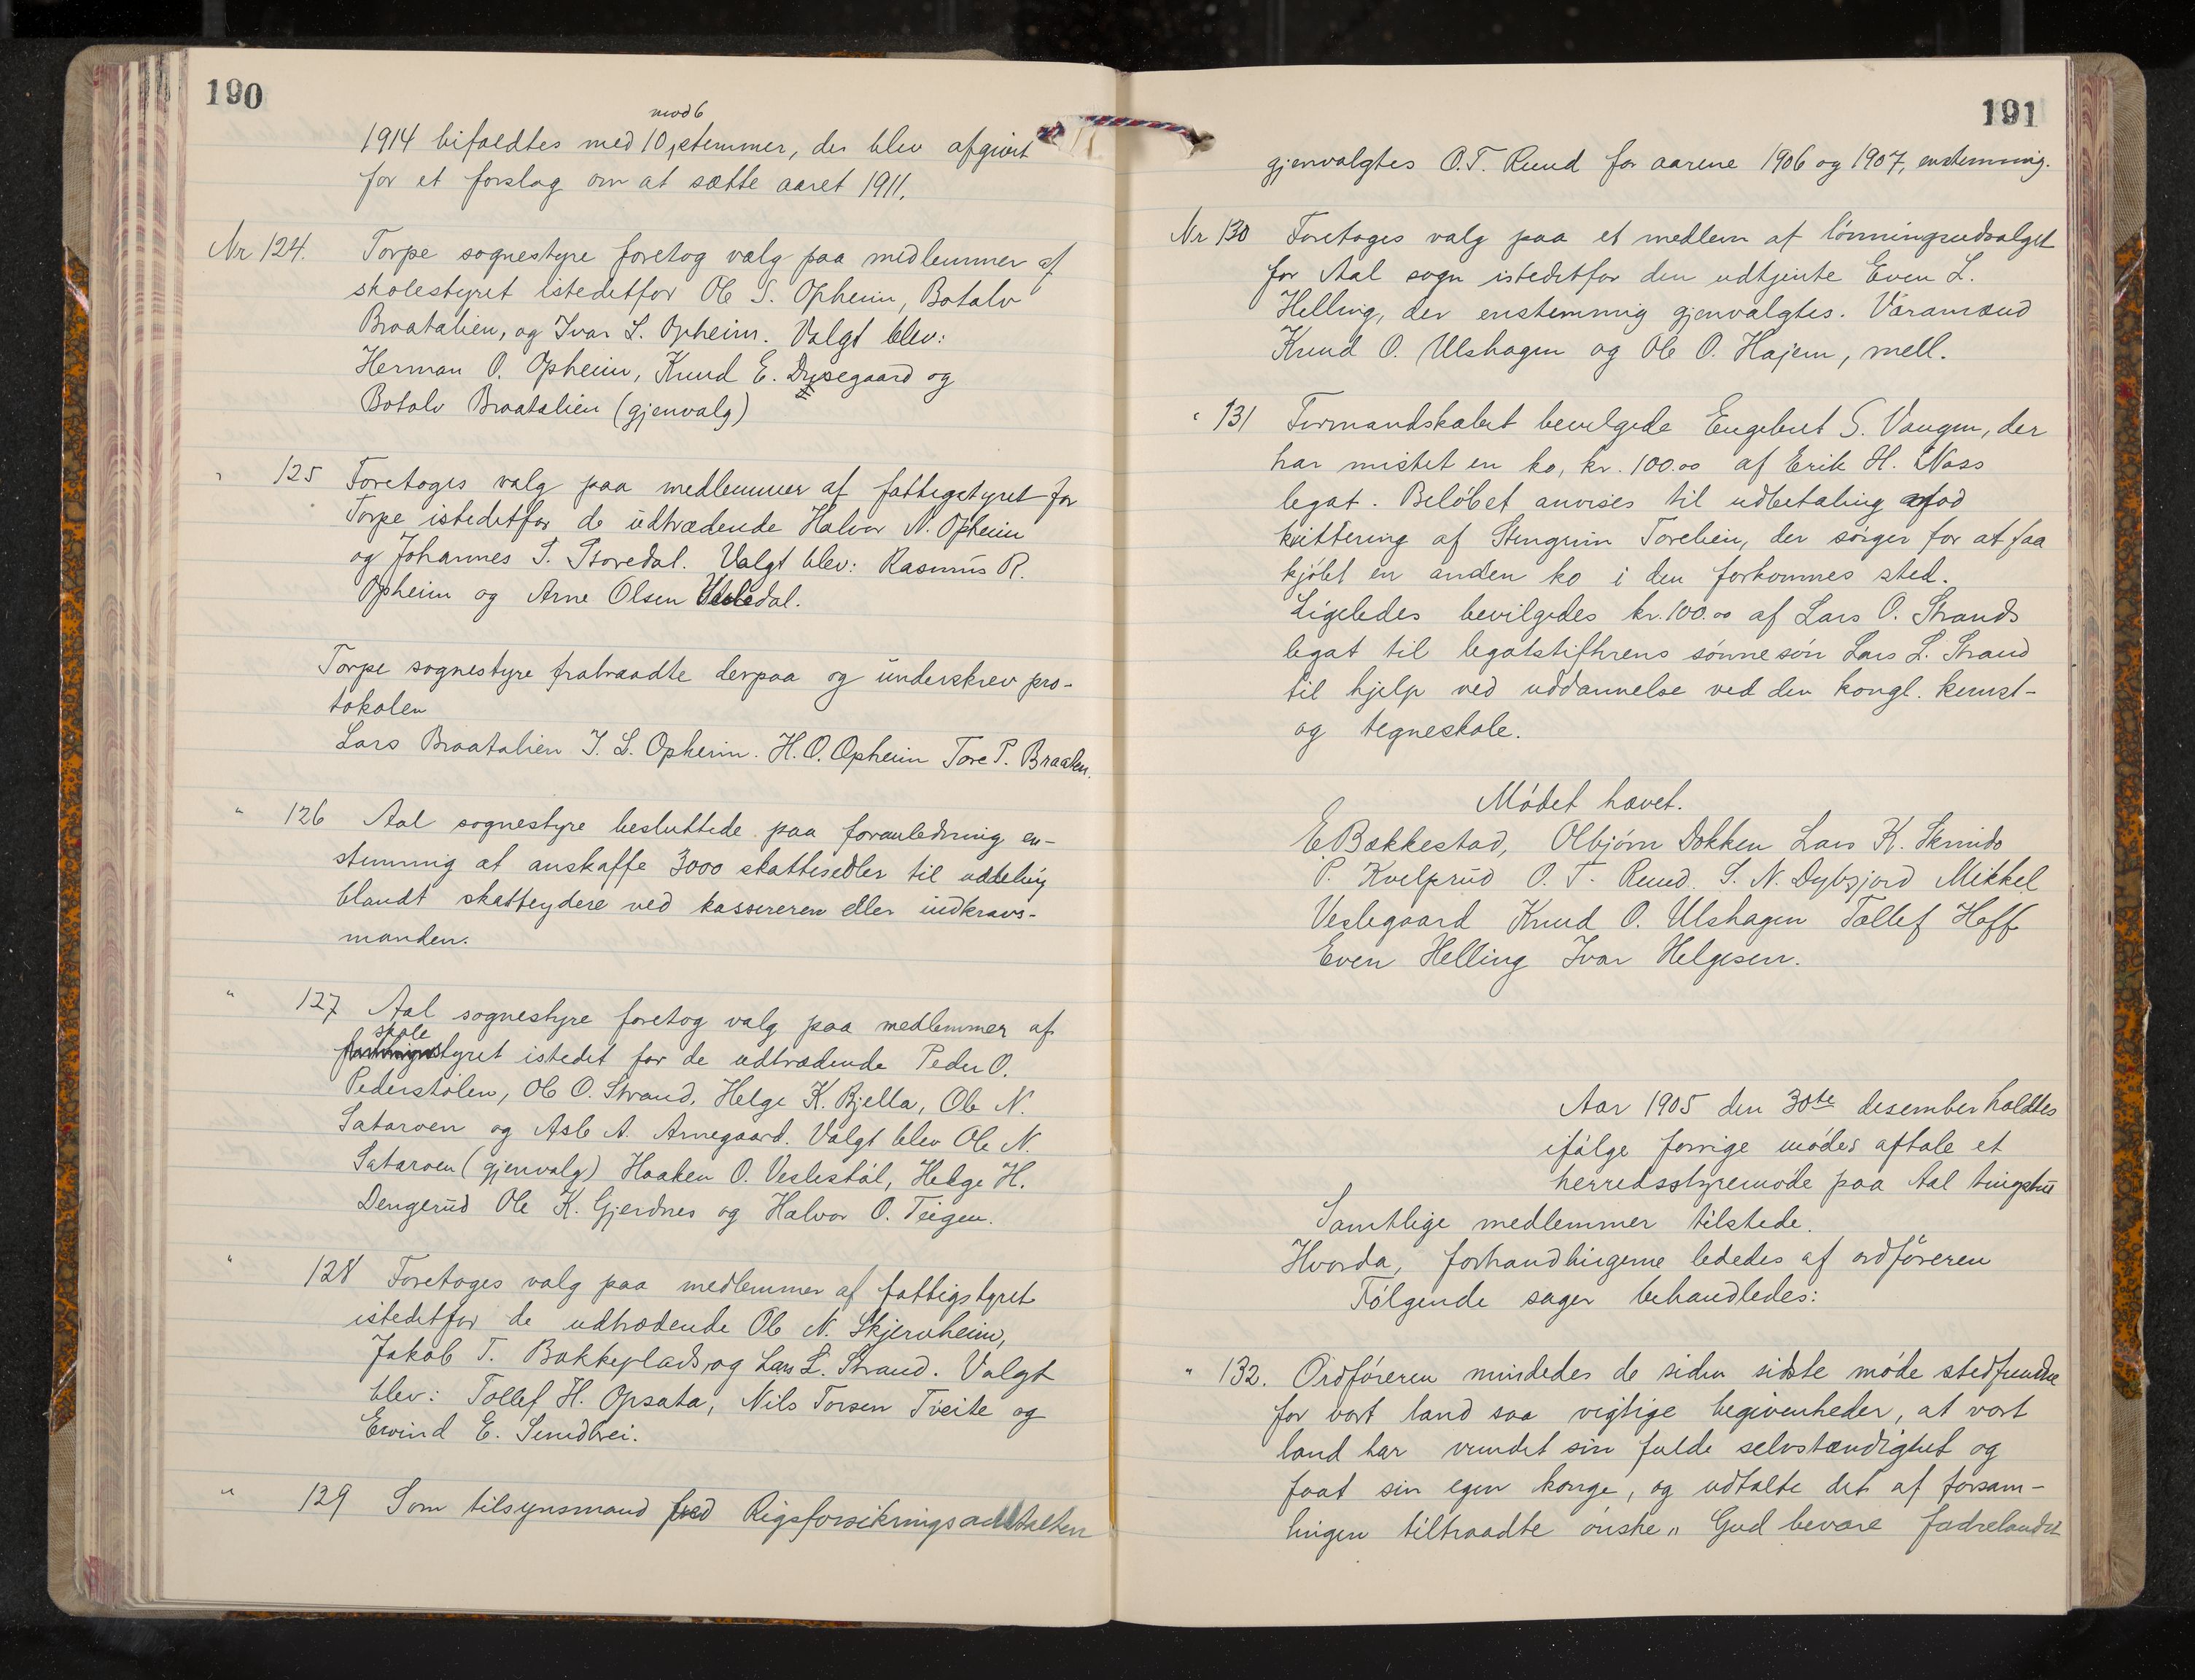 190
mod 6
1914 bifaldtes med 10 stemmer, der blev afgivet
for et forslag om at sætte aaret 1911.
Nr 124. Torpe sognestyre foretog valg paa medlemmer af
skolestyret istedetfor Ole S. Opheim, Botolv
Braatalien, og Ivar L. Opheim. Valgt blev:
Herman O. Opheim, Knud E. Dysegaard og
Botolv Braatalien (gjenvalg)
" 125 Foretoges valg paa medlemmer af fattigstyret for
Torpe istedetfor de udtrædende Halvor N. Opheim
og Johannes T. Storedal. Valgt blev: Rasmus R.
Opheim og Arne Olsen Vesledal.
Torpe sognestyre fratraadte derpaa og underskrev pro-
tokolen
Lars Braatalien I. L. Opheim. H. O. Opheim Tore P. Braaten.
" 126 Aal sognestyre besluttede paa foranledning en-
stemmig at anskaffe 3000 skattesedler til uddeling
blandt skatteydere ved kassereren eller indkravs-
manden.
" 127 Aal sognestyre foretog valg paa medlemmer af
skole
styret istedet for de udtrædende Peder O.
Pederstølen, Ole O. Strand, Helge K. Bjella, Ole N.
Sataroen og Asle A. Arnegaard. Valgt blev Ole N.
Sataroen (gjenvalg) Haaken O. Veslestøl, Helge H.
Dengerud Ole K. Gjerdnes og Halvor O. Teigen.
" 128 Foretoges valg paa medlemmer af fattigstyret
istedetfor de udtrædende Ole N. Skjervheim,
Jakob T. Bakkeplads, og Lars L. Strand. Valgt
blev: Tollef H. Opsata, Nils Torsen Tveite og
Eivind E. Sundbrei.
" 129 Som tilsynsmand ved Rigsforsikringsanstalten
191
gjenvalgtes O. T. Ruud for aarene 1906 og 1907, enstemmig.
Nr 130 Foretoges valg paa et medlem af lønningsudvalget
for Aal sogn istedetfor den udtjente Even L.
Helling, der enstemmig gjenvalgtes. Varamænd
Knud O. Ulshagen og Ole O. Hajem, mell.
" 131 Formandskabet bevilgede Engebret S. Vangen, der
har mistet en ko, kr. 100.00 af Erik H. Noss
legat. Beløbet anvises til udbetaling mod
kvittering af Stengrim Torelien, der sørger for at faa
kjøbt en anden ko i den forkomnes sted.
Ligeledes bevilgedes kr. 100.00 af Lars O. Strands
legat til legatstifterens sønnesøn Lars L. Strand
til hjelp ved uddannelse ved den kongl. kunst-
og tegneskole.
Mødet hævet.
E Bakkestad, Olbjørn Dokken Lars K. Skrindo
P. Kvelprud O. T. Ruud. S. N. Dybsjord Mikkel
Veslegaard Knud O. Ulshagen Tollef Hoff
Even Helling Ivar Helgesen.
Aar 1905 den 30te desember holdtes
ifølge forrige mødes aftale et
herredsstyremøde paa Aal tingstu
Samtlige medlemmer tilstede.
Hvorda, forhandlingerne lededes af ordføreren
Følgende sager behandledes:
" 132. Ordføreren mindedes de siden sidste møde stedfundne
for vort land saa vigtige begivenheder, at vort
land har vundet sin fulde selvstændighet og
faat sin egen konge, og udtalte det af forsam-
lingen tiltraadte ønske „Gud bevare fædrelandet